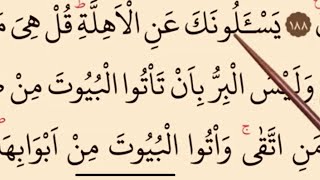 ١٨٨ يَسْـَٔلُونَكَ عَنِ الْاَهِلَّةِ ۖ قُلْ هِىَ
وَلَيْسَ الْبِرُّ بِاَنْ تَاْتُوا الْبُيُوتَ مِنْ
مَنِ اتَّقٰى ۚ وَاْتُوا الْبُيُوتَ مِنْ اَبْوَابِهَا